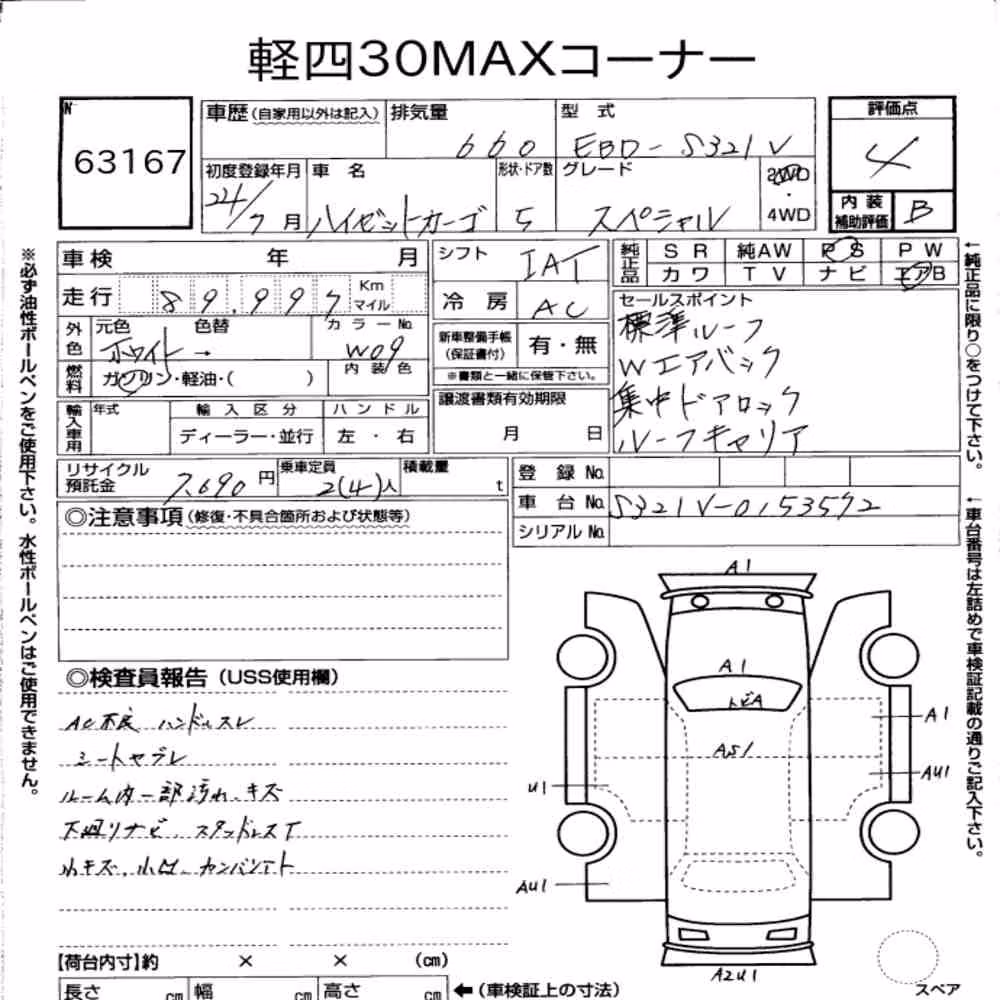 軽四30MAXコーナー
№
63167
車歴(自家用以外は記入)
排気量
660
型 式
EBD-S321V
評価点
4
初度登録年月
24/7月
車 名
ハイゼットカーゴ
形状・ドア数
5
グレード
スペシャル
2WD
・
4WD
内 装
補助評価
B
車検 年 月
走行 89,997
Km
マイル
外色
元色
色替
ホワイト→
カラーNo.
W09
燃料
ガソリン・軽油・( )
内 装 色
輸入車用
年式
輸 入 区 分
ディーラー・並行
ハ ン ド ル
左 ・ 右
シフト
IAT
冷 房
AC
新車整備手帳
(保証書付)
有・無
※書類と一緒に保管下さい。
譲渡書類有効期限
月 日
純正品
S R
純AW
P S
P W
カ ワ
T V
ナ ビ
エアB
セールスポイント
標準ルーフ
Wエアバック
集中ドアロック
ルーフキャリア
リサイクル
預託金
7,690 円
乗車定員
2(4)人
積載量
t
登 録 No.
車 台 No.
S321V-0153572
シリアル No.
◎注意事項(修復・不具合箇所および状態等)
◎検査員報告(USS使用欄)
AC不良 ハンドルスレ
シートヤブレ
ルーム内一部汚れ、キズ
下廻りサビ スタッドレスT
小キズ、小凹
A1
A1
トビA
AS1
A1
AU1
U1
AU1
A2U1
スペア
【荷台内寸】約 × × (cm)
長さ cm
幅 cm
高さ cm
←(車検証上の寸法)
※必ず油性ボールペンをご使用下さい。水性ボールペンはご使用できません。
←純正品に限り○をつけて下さい。
←車台番号は左詰めで車検証記載の通りご記入下さい。